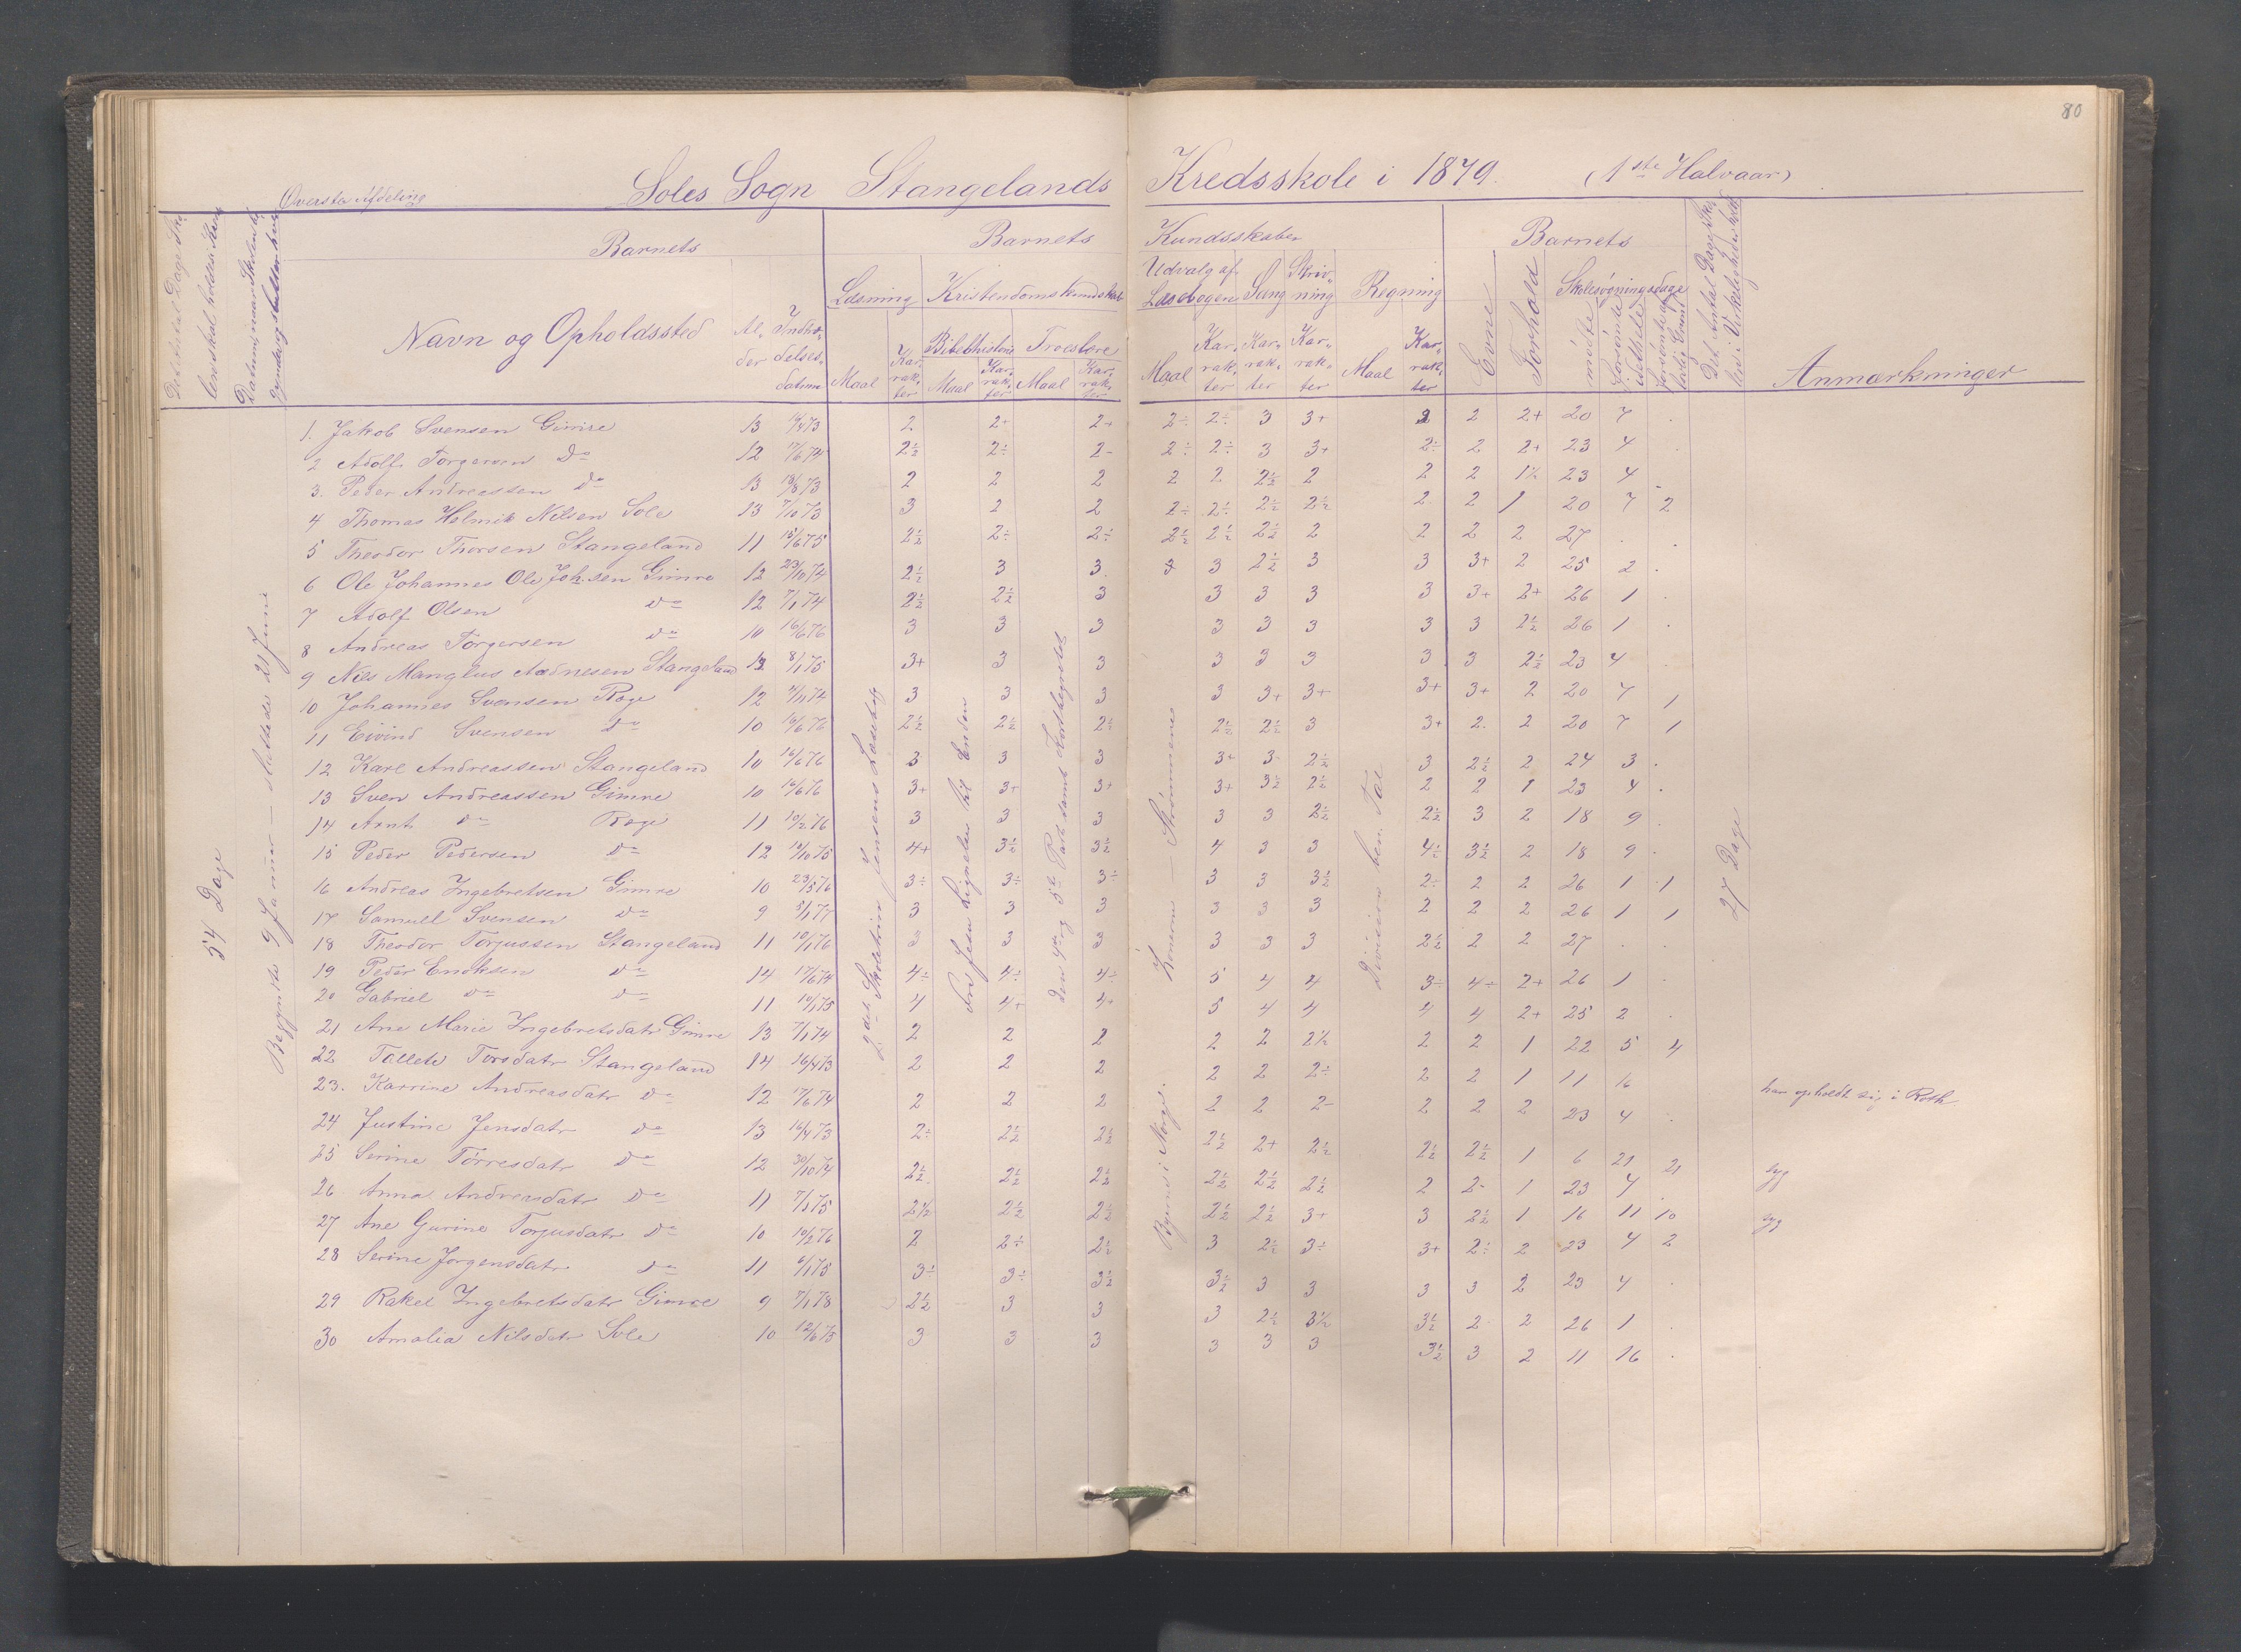 80
Øverste Afdeling Soles Sogn Stangelands Kredsskole i 1879. (1ste Halvaar)
Barnets Barnets Kundsskaber Barnets
Læsning Kristendomskundskab Udvalg af Læsebogen Sang Skrivning Regning Evne Forhold Skolesøgningsdage
Navn og Opholdssted Alder Indtrædelsesdatum Maal Karakter Bibelhistorie Troeslære Maal Karakter Maal Karakter Maal Karakter Karakter Karakter Maal Karakter mødte Anmærkninger
54 Dage
Begyndte 9 Januar — sluttede 21 Juni
2det Skoletrin Jensens Læsebog
Fra Jesu Lignelser til Enden
Konerne — Strømmene
Byerne i Norge.
Division ben. Tal
27 Dage
1. Jakob Svensen Gimre 13 2 2+ 2+ 2÷ 2÷ 3 3+ 2 2 2+ 20 7 .
2 Adolf Torgersen Do 12 17/6 74 2½ 2÷ 2- 2÷ 2÷ 3 3+ 2÷ 2 2+ 23 4 .
3. Peder Andreassen do 13 13/8 73 2 2 2 2 2 2½ 2 2 2 1½ 23 4
4 Thomas Holmik Nilsen Sole 13 7/10 73 3 2 2 2÷ 2÷ 2½ 2½ 2 2 1 20 7 2
5 Theodor Thorsen Stangeland 11 15/6 75 2½ 2÷ 2÷ 2½ 2½ 2½ 2 2 2 2 27 . .
6 Ole Johannes Ole Joh.sen Gimre 12 23/10 74 2½ 3 3. 3 3 2½ 3 3 3+ 2 25 2 .
7 Adolf Olsen do 12 7/1 74 2½ 2½ 3 3 3 3 3 3+ 2+ 26 1 .
8 Andreas Torgersen do 10 16/6 76 3 3 3 3 3 3 3 3 2½ 26 1 .
9 Niels Manglus Aadnesen Stangeland 8/1 75 3+ 3 3 3 3 3 3 3 2½ 23 4 .
10 Johannes Svensen Røge 12 3 3 3 3 3+ 3+ 3+ 3+ 2 20 7 1
11 Eivind Svensen do 10 16/6 76 2½ 2½ 2½ 2½ 2½ 3 3+ 2 2 20 7 1
12 Karl Andreassen Stangeland 10 16/6 76 3 3 3 3+ 3- 2½ 3 2½ 2 24 3 .
13 Sven Andreassen Gimre 10 16/6 76 3+ 3+ 3+ 3+ 3½ 2½ 2 2 1 23 4 .
14 Arnt do Røge 11 10/2 76 3 3 3 3 3 2½ 2½ 3 2 18 9 .
15 Peder Pedersen do 12 4+ 3½ 3½ 4 3 3 4½ 3½ 2 18 9 .
16 Andreas Ingebretsen Gimre 10 23/5 76 3÷ 3÷ 3÷ 3 3 3½ 2÷ 2 2 26 1 1
17 Samuel Svensen do 9 5/1 77 3 3 3 3 3 3 2 2 2 26 1 1
18 Theodor Torjussen Stangeland 11 10/1 76 3 3 3 3 3 3 2½ 2 2 27 . .
19 Peder Eriksen do 14 17/6 74 4÷ 4÷ 4÷ 5 4 4 3÷ 4÷ 2+ 26 1 .
20 Gabriel do do 11 10/1 75 4 4+ 4+ 5 4 4 4 4 2+ 25 2 .
21 Ane Marie Ingebretsdatr Gimre 13 7/1 74 2 2 2 2 2 2½ 2 2 1 22 5 4
22 Tallete Torsdatr Stangeland 14 16/4 73 2 2 2 2 2 2÷ 2 2 1 11 16 har opholdt sig i Roth
23. Karrine Andreasdatr do 12 17/6 74 2 2 2 2 2 2- 2 2 2 23 4 .
24 Justine Jensdatr do 13 16/4 73 2÷ 2½ 2½ 2½ 2+ 2½ 2½ 2½ 1 6 21 21 syg
25 Serine Tørresdatr do 12 30/10 74 2½ 2½ 2½ 2½ 2½ 2½ 2 2- 1 23 4 .
26 Anna Andreasdatr do 11 7/1 75 2½ 2½ 2½ 2½ 2½ 3+ 3 2½ 1 16 11 10 syg
27 Ane Gurine Torjusdatr do 10 10/2 76 2 2÷ 2½ 3 2½ 3÷ 3+ 2÷ 2 23 4 2
28 Serine Jørgensdatr do 11 3÷ 3÷ 3½ 3½ 3 3 3 3 2 23 4 .
29 Rakel Ingebretsdatr Gimre 9 7/1 78 2½ 3 3 3 2½ 3½ 3½ 2 2 26 1 .
30 Amalia Nilsdatr Sole 10 12/6 75 3 3 3 3 3 3 3½ 3 2 11 16 .